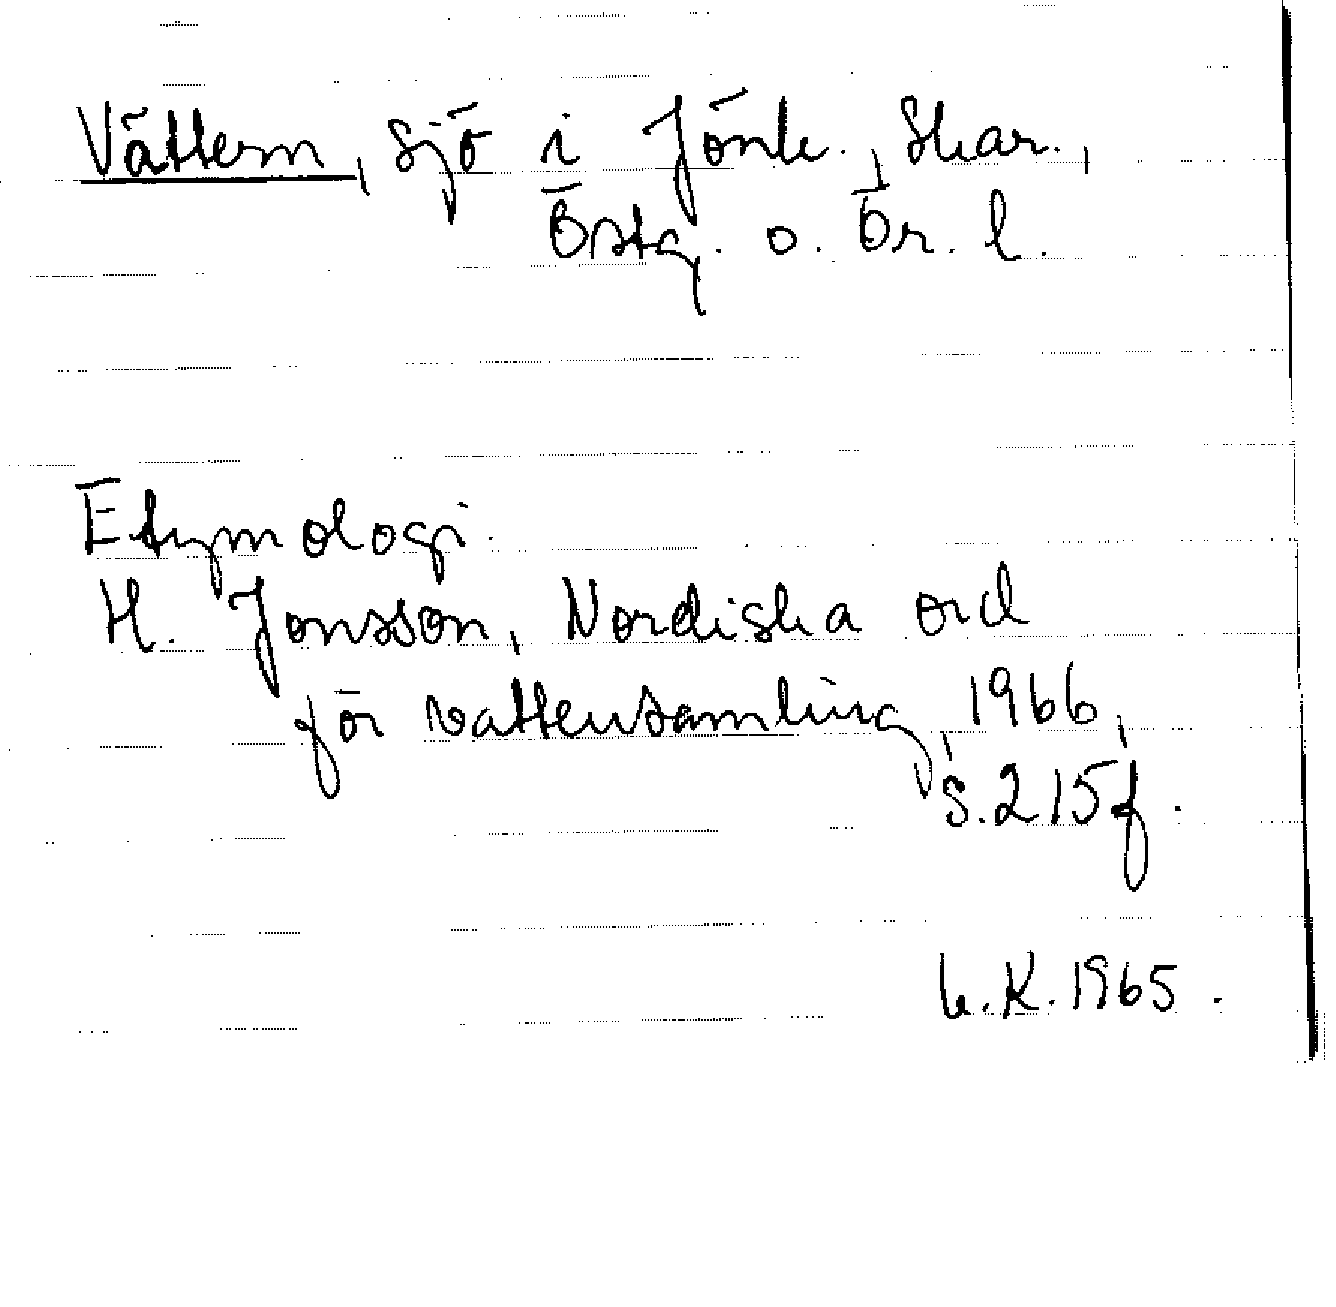 Vättern, sjö i Jönk., Skar.,
Östg. o. Ör. l.
Etymologi.
H. Jonsson, Nordiska ord
för vattensamling, 1966,
s. 215 f.
L.K. 1965.